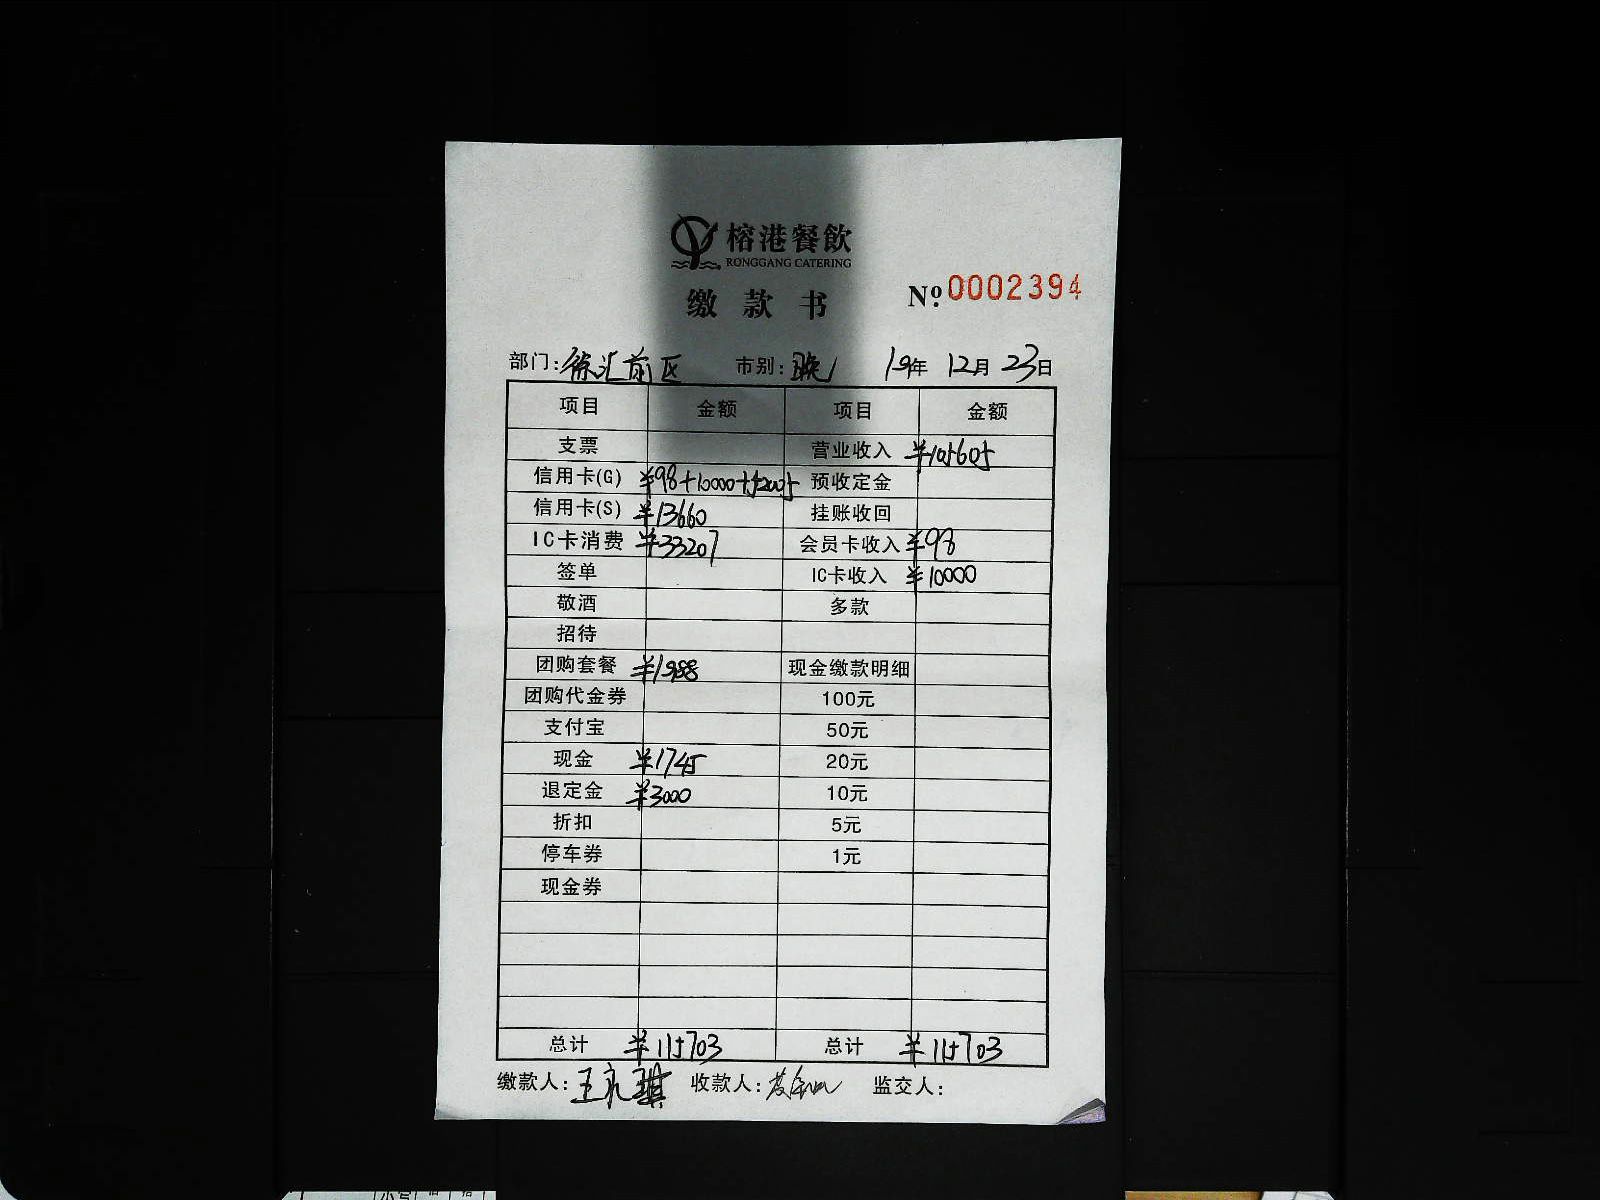 榕港餐飲
RONGGANG CATERING
缴款书
№ 0002394
部门: 徐汇前区 市别: 晚 19年 12月 23日
项目 金额 项目 金额
支票 营业收入 ¥105605
信用卡(G) ¥98+10000+52005 预收定金
信用卡(S) ¥13660 挂账收回
IC卡消费 ¥33207 会员卡收入 ¥98
签单 IC卡收入 ¥10000
敬酒 多款
招待
团购套餐 ¥1988 现金缴款明细
团购代金券 100元
支付宝 50元
现金 ¥1745 20元
退定金 ¥3000 10元
折扣 5元
停车券 1元
现金券
总计 ¥115703 总计 ¥115703
缴款人: 王永琪 收款人: 监交人: